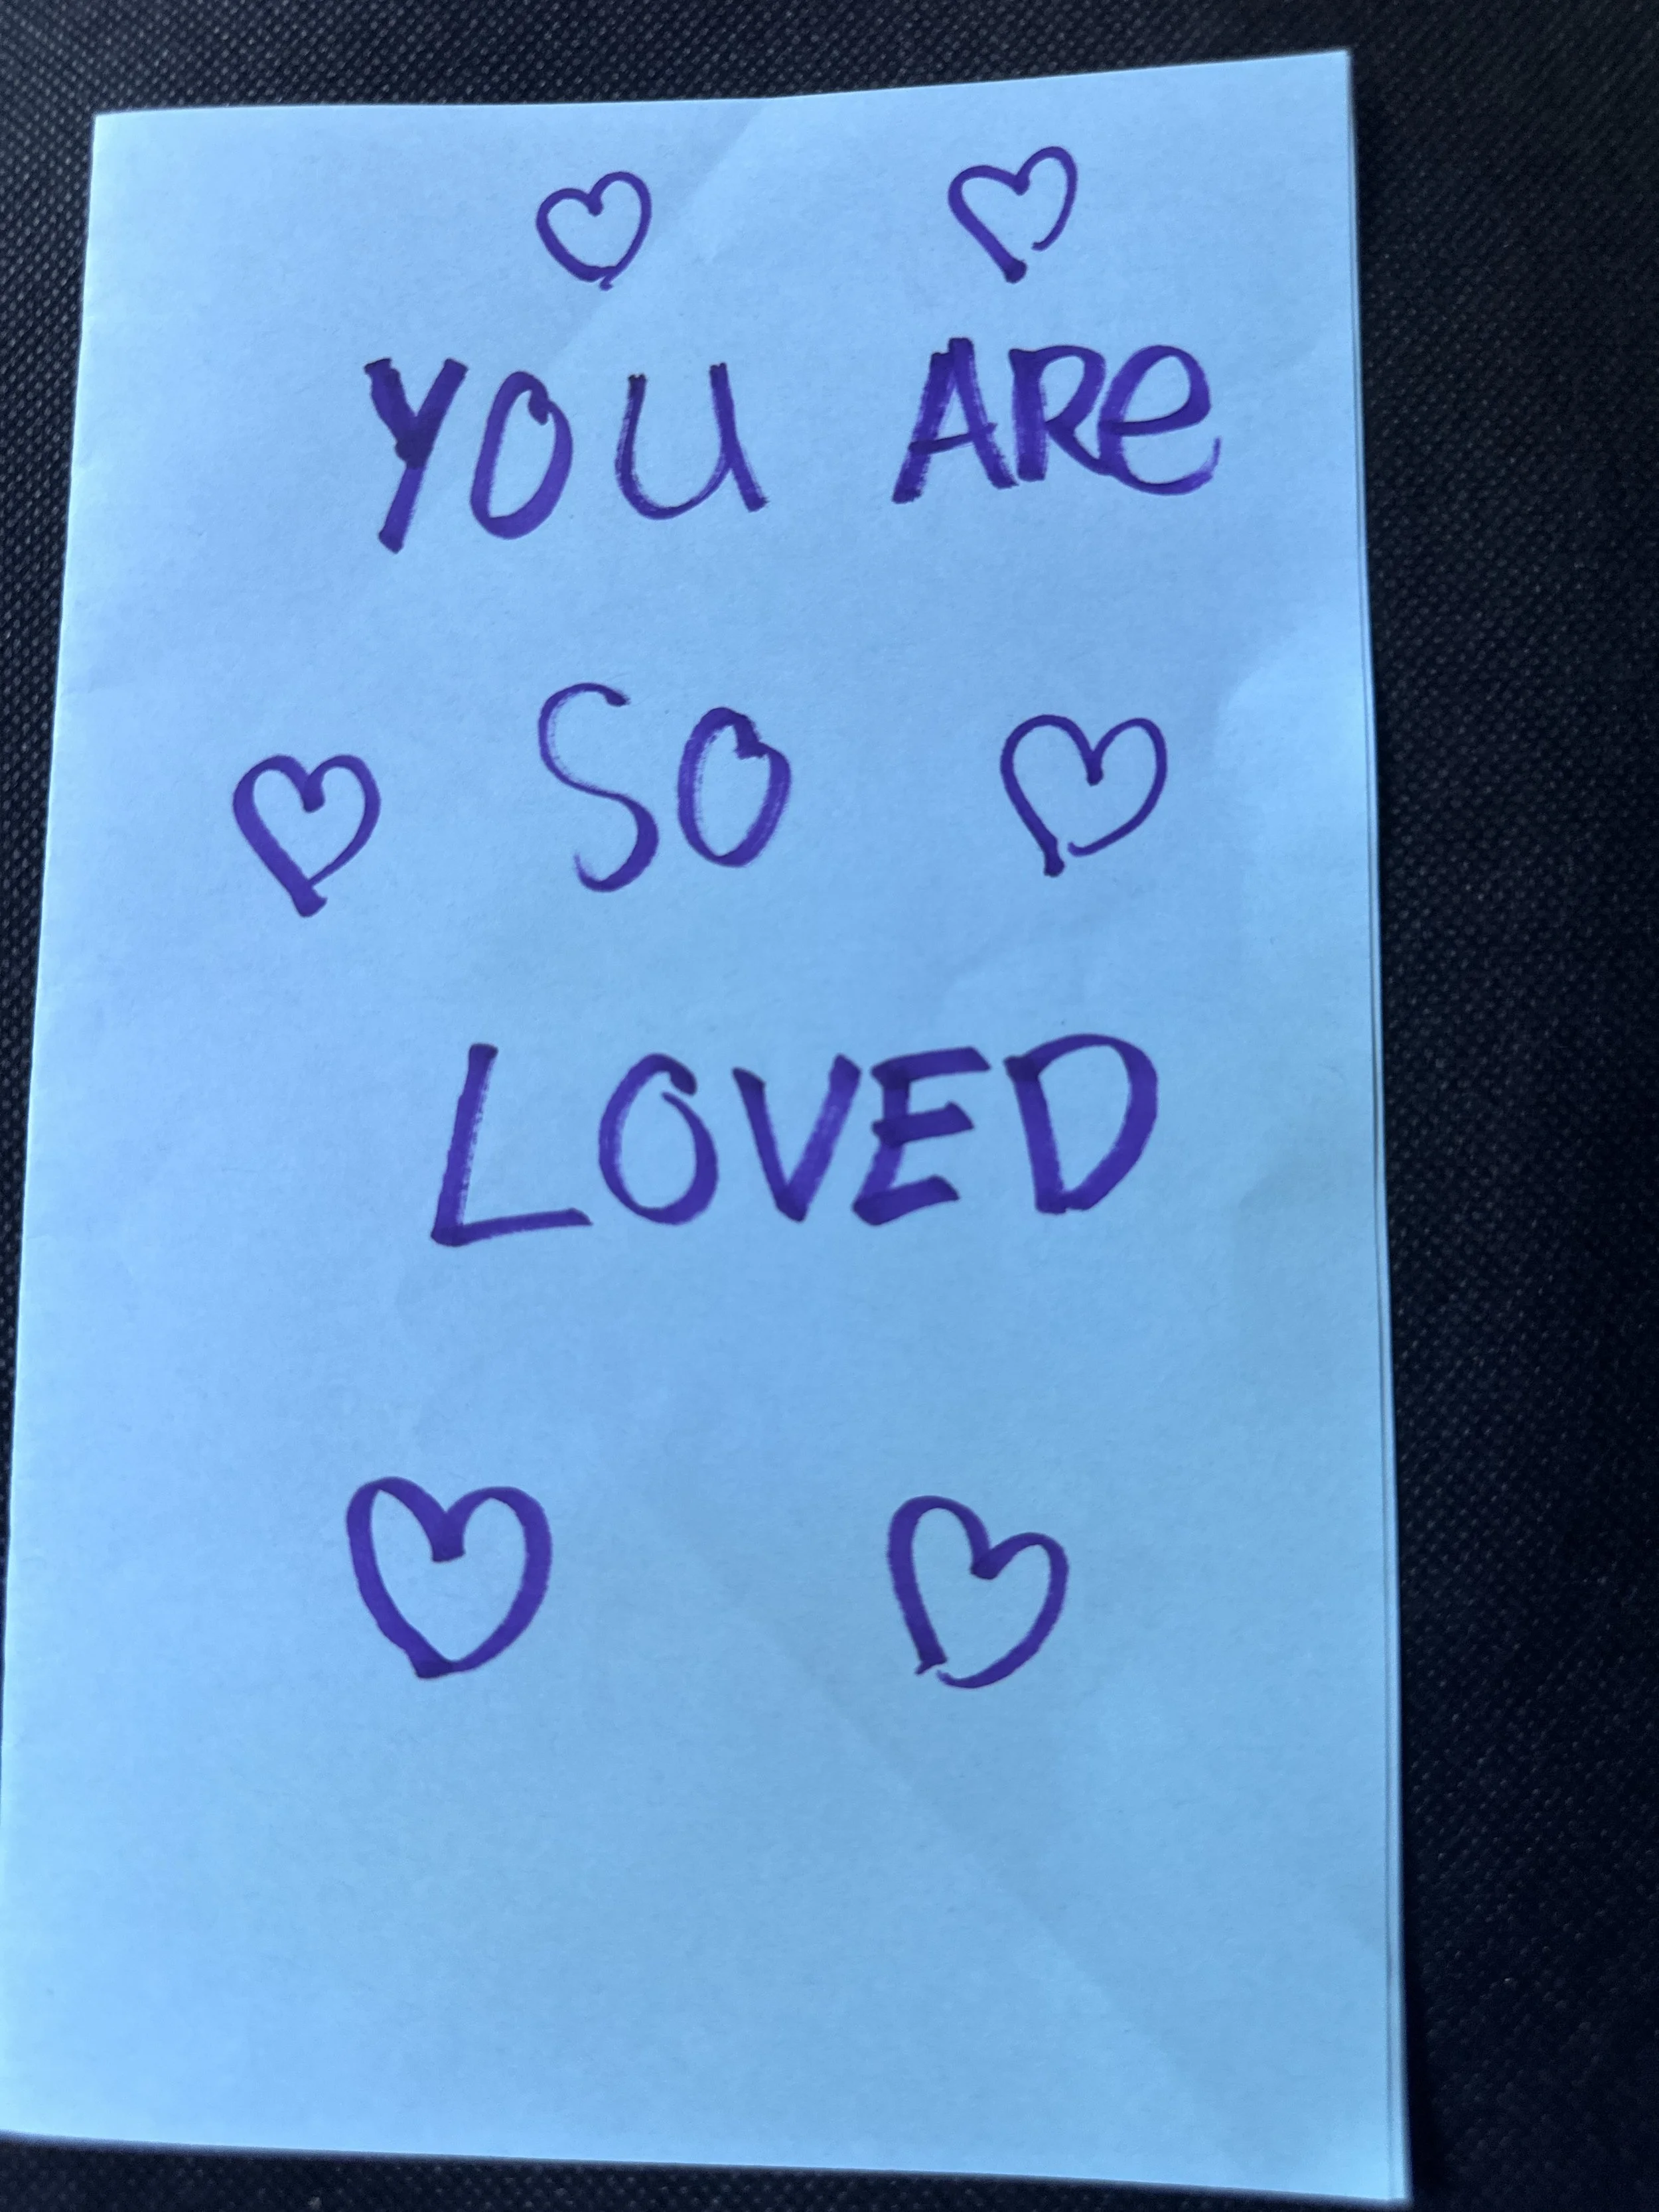 YOU ARe
SO
LOVED